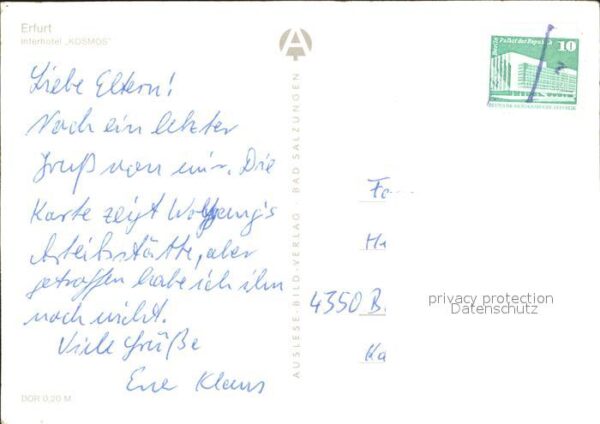 Erfurt
Interhotel „KOSMOS“
Liebe Eltern!
Noch ein letzter
Gruß von mir. Die
Karte zeigt Wolfgang's
Arbeitsstätte, aber
getroffen habe ich ihn
noch nicht.
Viele Grüße
Euer Klaus
DDR 0,20 M
A
AUSLESE-BILD-VERLAG · BAD SALZUNGEN
Berlin Palast der Republik
10
Fa
Ha
4350 B.
Ka
privacy protection
Datenschutz